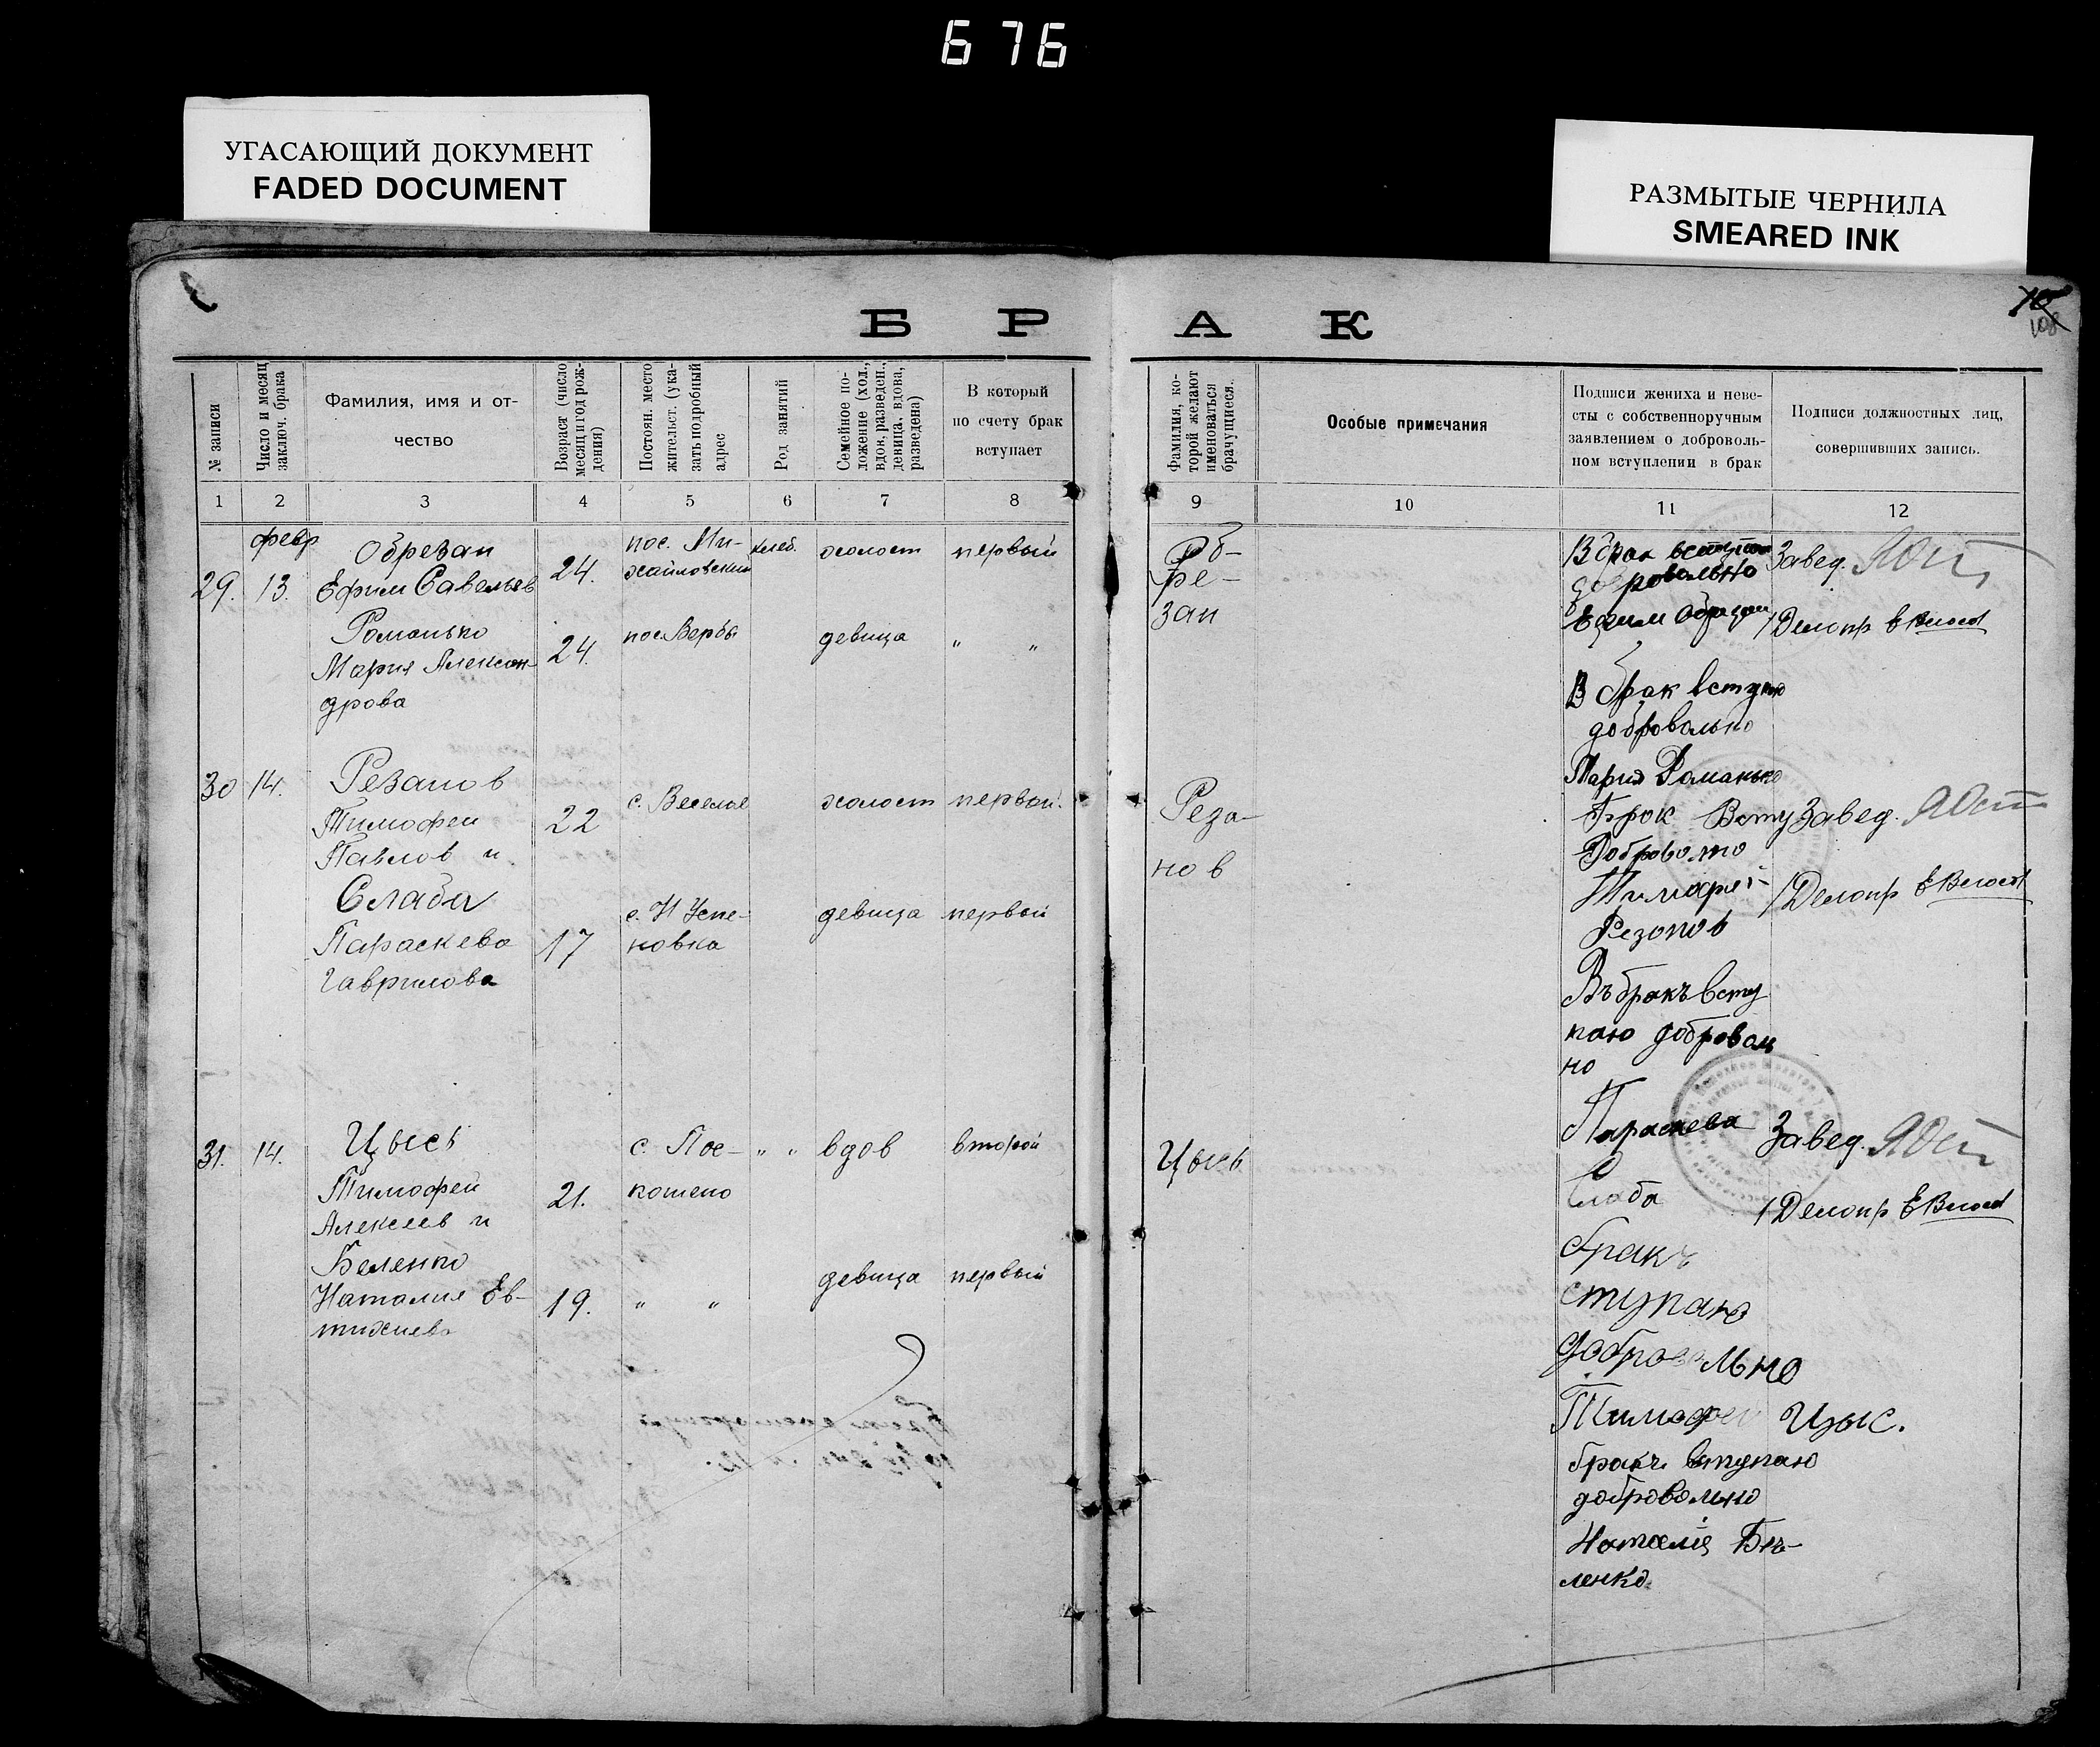 676
УГАСАЮЩИЙ ДОКУМЕНТ
FADED DOCUMENT
РАЗМЫТЫЕ ЧЕРНИЛА
SMEARED INK
108
Б Р А К
№ записи
Число и месяц
заключ. брака
Фамилия, имя и от-
чество
Возраст (число
месяц и год рож-
дения)
Постоян. место
жительст. (ука-
зать подробный
адрес
Род занятий
Семейное по-
ложение (хол.,
вдов, разведен.,
девица, вдова,
разведена)
В который
по счету брак
вступает
Фамилия, ко-
торой желают
именоваться
брачущиеся.
Особые примечания
Подписи жениха и неве-
сты с собственноручным
заявлением о доброволь-
ном вступлении в брак
Подписи должностных лиц,
совершивших запись.
1 2 3 4 5 6 7 8 9 10 11 12
29.
февр
13.
Обрезан
Ефим Савельев
24.
пос. Ми-
хайловский
хлеб.
холост
первый
Романько
Мария Алексан-
дрова
24.
пос. Верба
девица
" "
Об-
ре-
зан
В брак вступаю
добровольно
Ефим Обрезан
В брак вступаю
добровольно
Мария Романько
Завед.
Делопр
30
14.
Резанов
Тимофей
Павлов и
22
с. Веселое
холост
первый.
Слаба
Параскева
Гаврилова
17
с. Н Успе-
новка
девица
первый
Реза-
нов
Брок Всту
Доброволно
Тимофей
Резонов
Въ бракъ всту
паю добровол
но
Параскева
Слаба
Завед.
Делопр
31.
14.
Цысь
Тимофей
Алексеев и
21.
с. Пое-
кошено
" "
вдов
второй
Беленко
Наталия Ев-
тихиева
19.
" "
девица
первый
Цысь
бракъ
ступаю
добровольно
Тимофей Цыс.
бракъ вступаю
добровольно
Наталія Бѣ-
ленко.
Завед.
Делопр